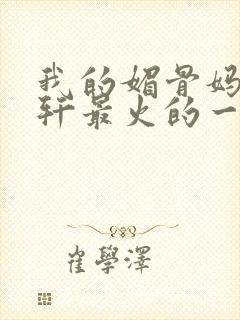 我的媚骨妈
轩最火的一
崔學澤